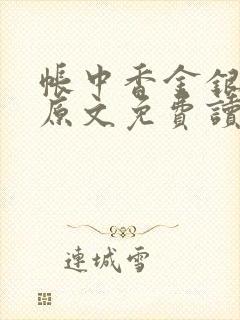 帳中香金銀
原文免費讀
連城雪